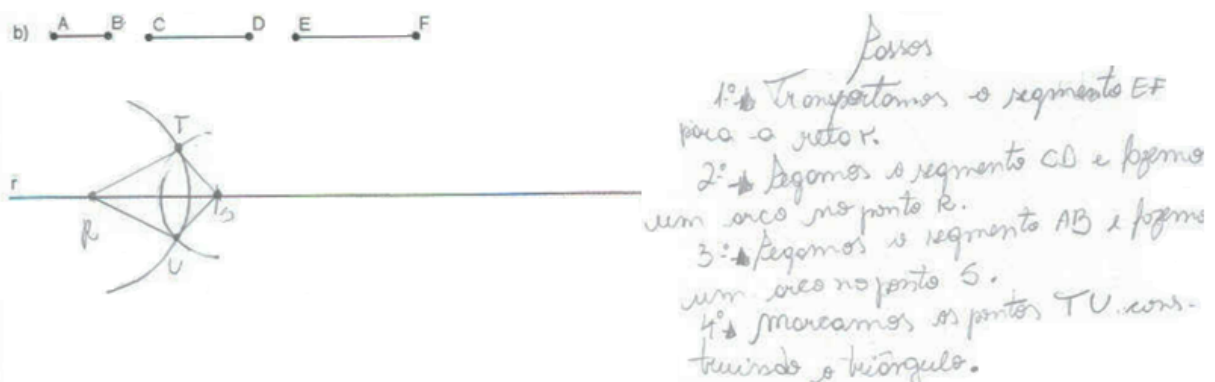 b) A B C D E F
T
r
R S
U
Passos
1º Transportamos o segmento EF
para a reta r.
2º Pegamos o segmento CD e fazemo
um arco no ponto R.
3º Pegamos o segmento AB e fazemo
um arco no ponto S.
4º marcamos os pontos TU cons-
truindo o triângulo.